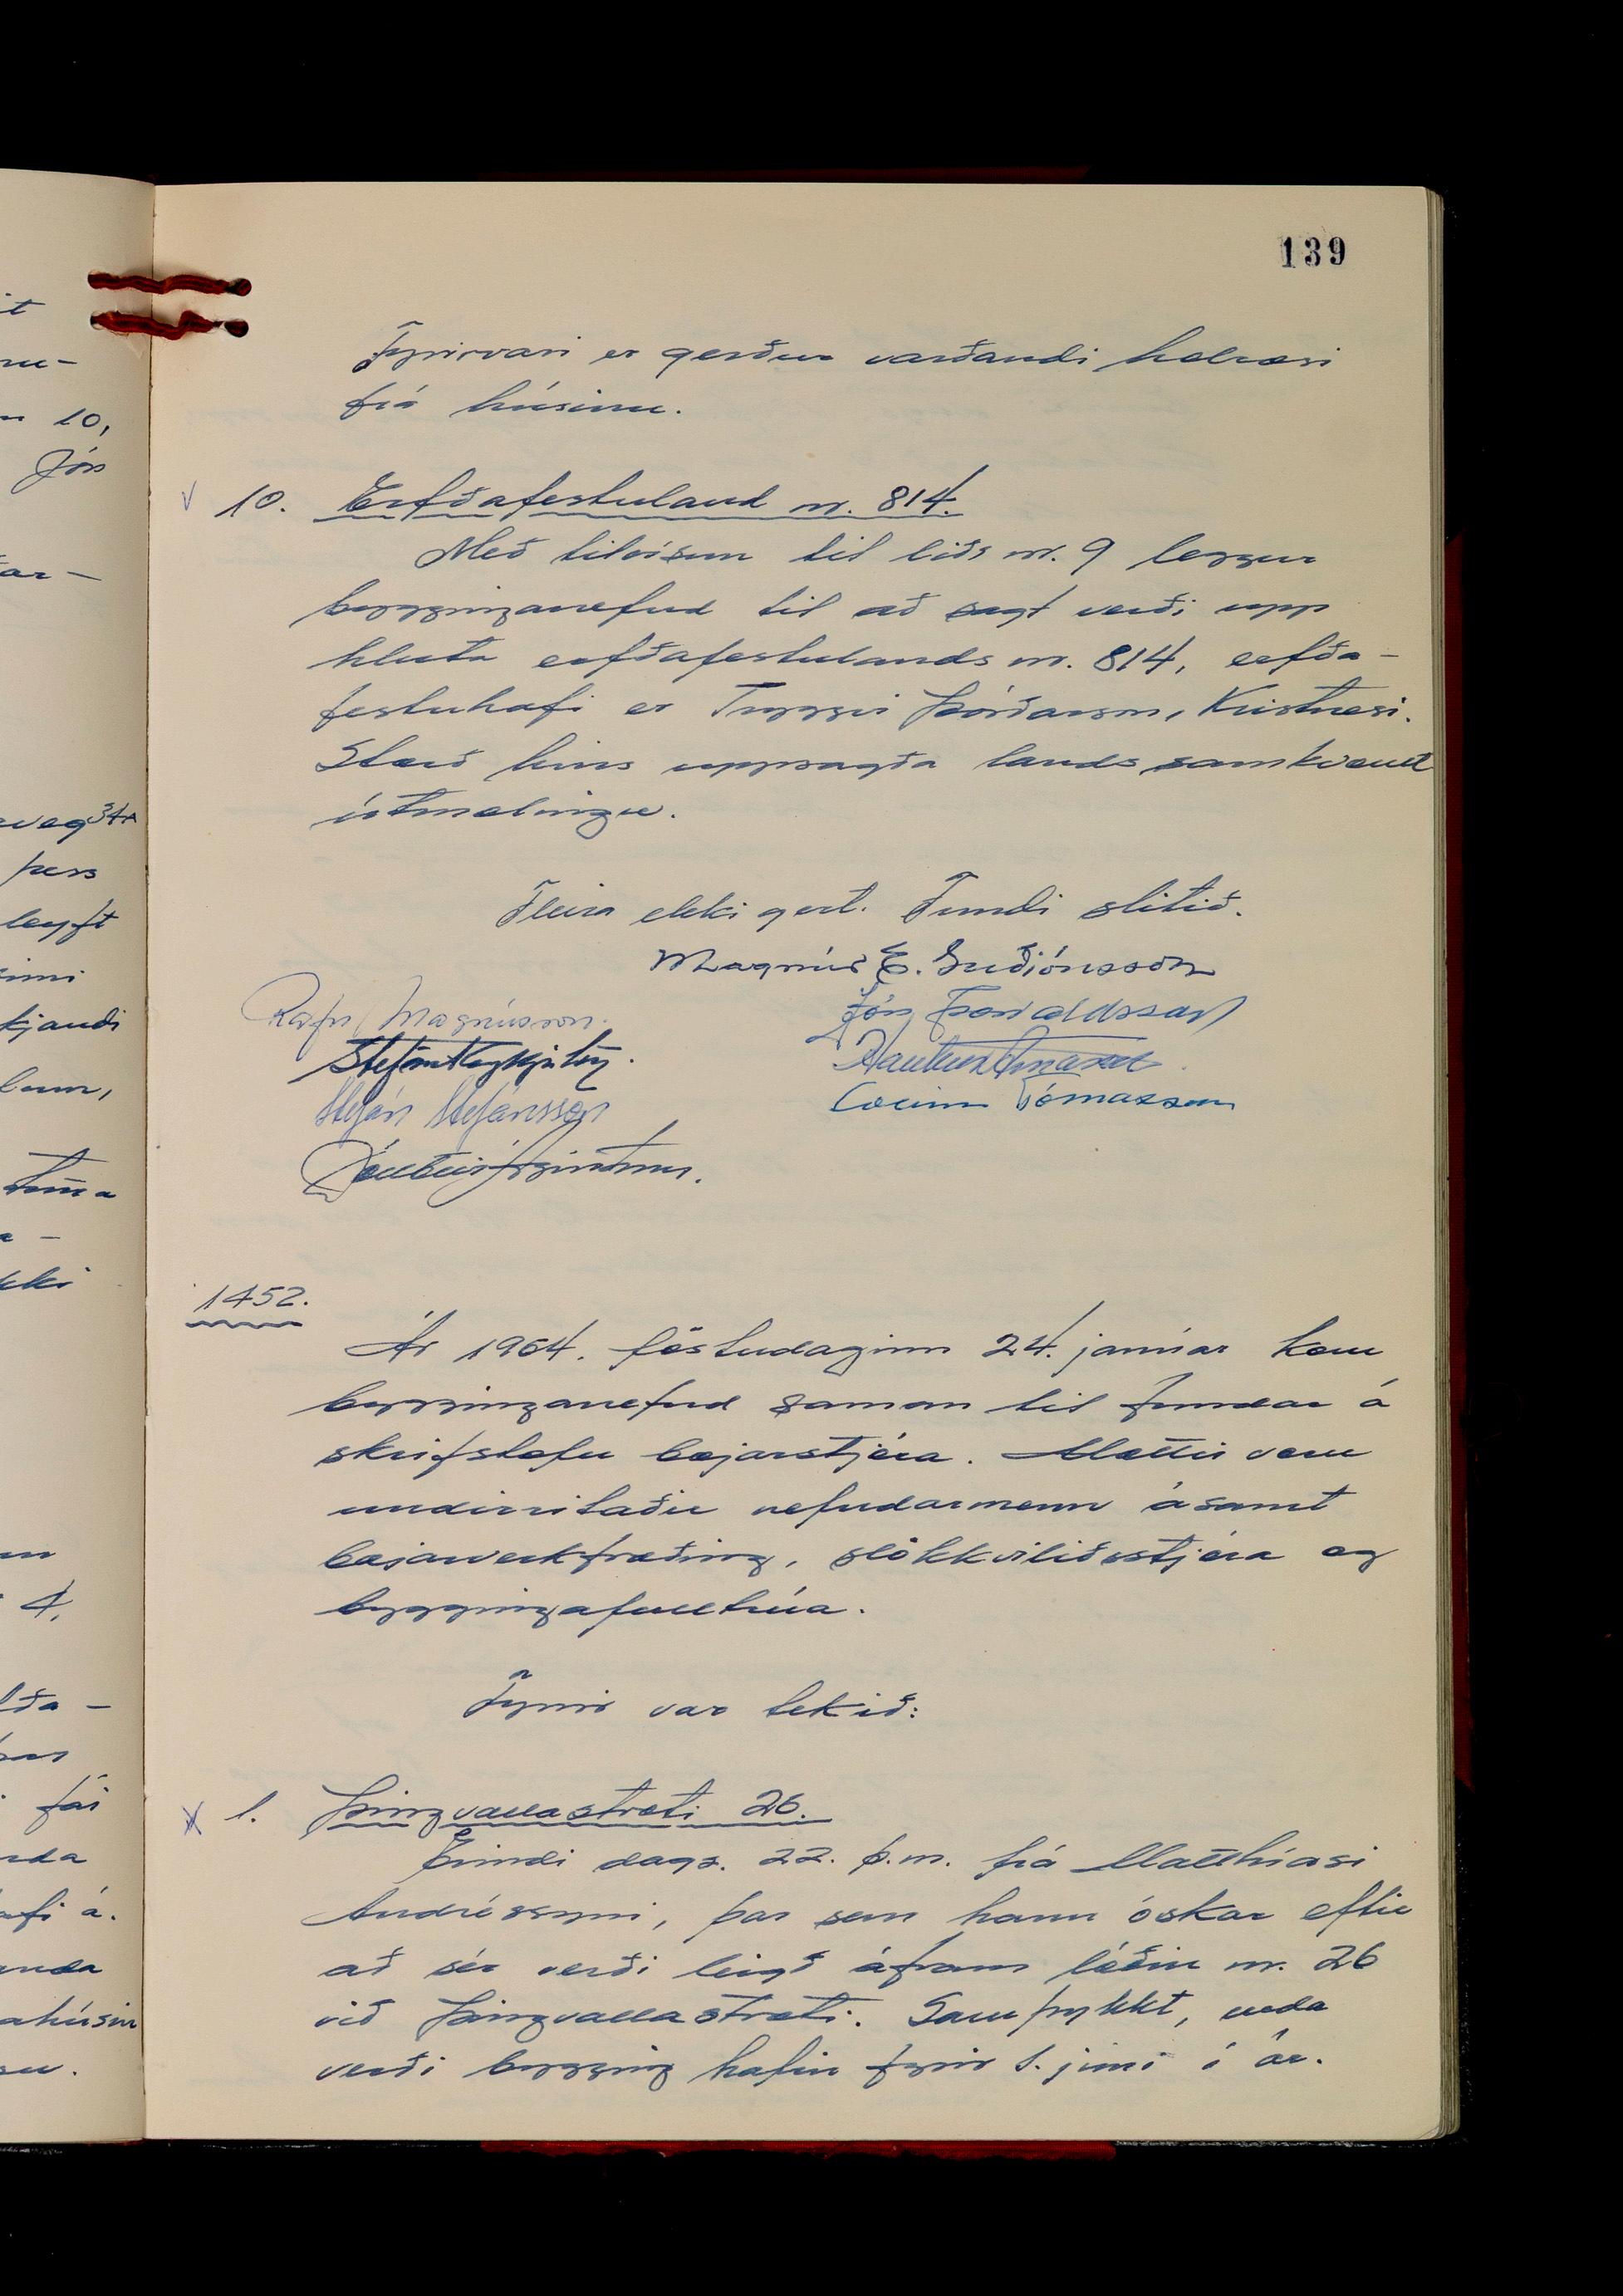 139
Fyrirvari er gerður varðandi holræsi
frá húsinu.
10. Erfðafestuland nr. 814.
Með tilvísun til liðs nr. 9 leggur
bygginganefnd til að sagt verði upp
hluta erfðafestulands nr. 814, erfða-
festuhafi er Tryggvi Þórðarson, Kristnesi.
Stærð hins uppsagða lands samkvæmt
útmælingu.
Fleira ekki gert. Fundi slitið.
Magnús E. Guðjónsson
Rafn Magnússon.
Jón Þorvaldsson
Stefán Reykjalín.
Haukur
Stefán Stefánsson
Tómasson
1452.
Ár 1964. föstudaginn 24. janúar kom
bygginganefnd saman til fundar á
skrifstofu bæjarstjóra. Mættir voru
undirritaðir nefndarmenn ásamt
bæjarverkfræðing, slökkviliðsstjóra og
byggingafulltrúa.
Fyrir var tekið:
1. Þingvallastræti 26.
Erindi dags. 22. þ.m. frá Matthíasi
Andréssyni, þar sem hann óskar eftir
að sér verði leigð áfram lóðin nr. 26
við Þingvallastræti. Samþykkt, enda
verði bygging hafin fyrir 1. júní í ár.
10,
Jón
veg 34A
þess
leyft
inni
kjandi
4.
fái